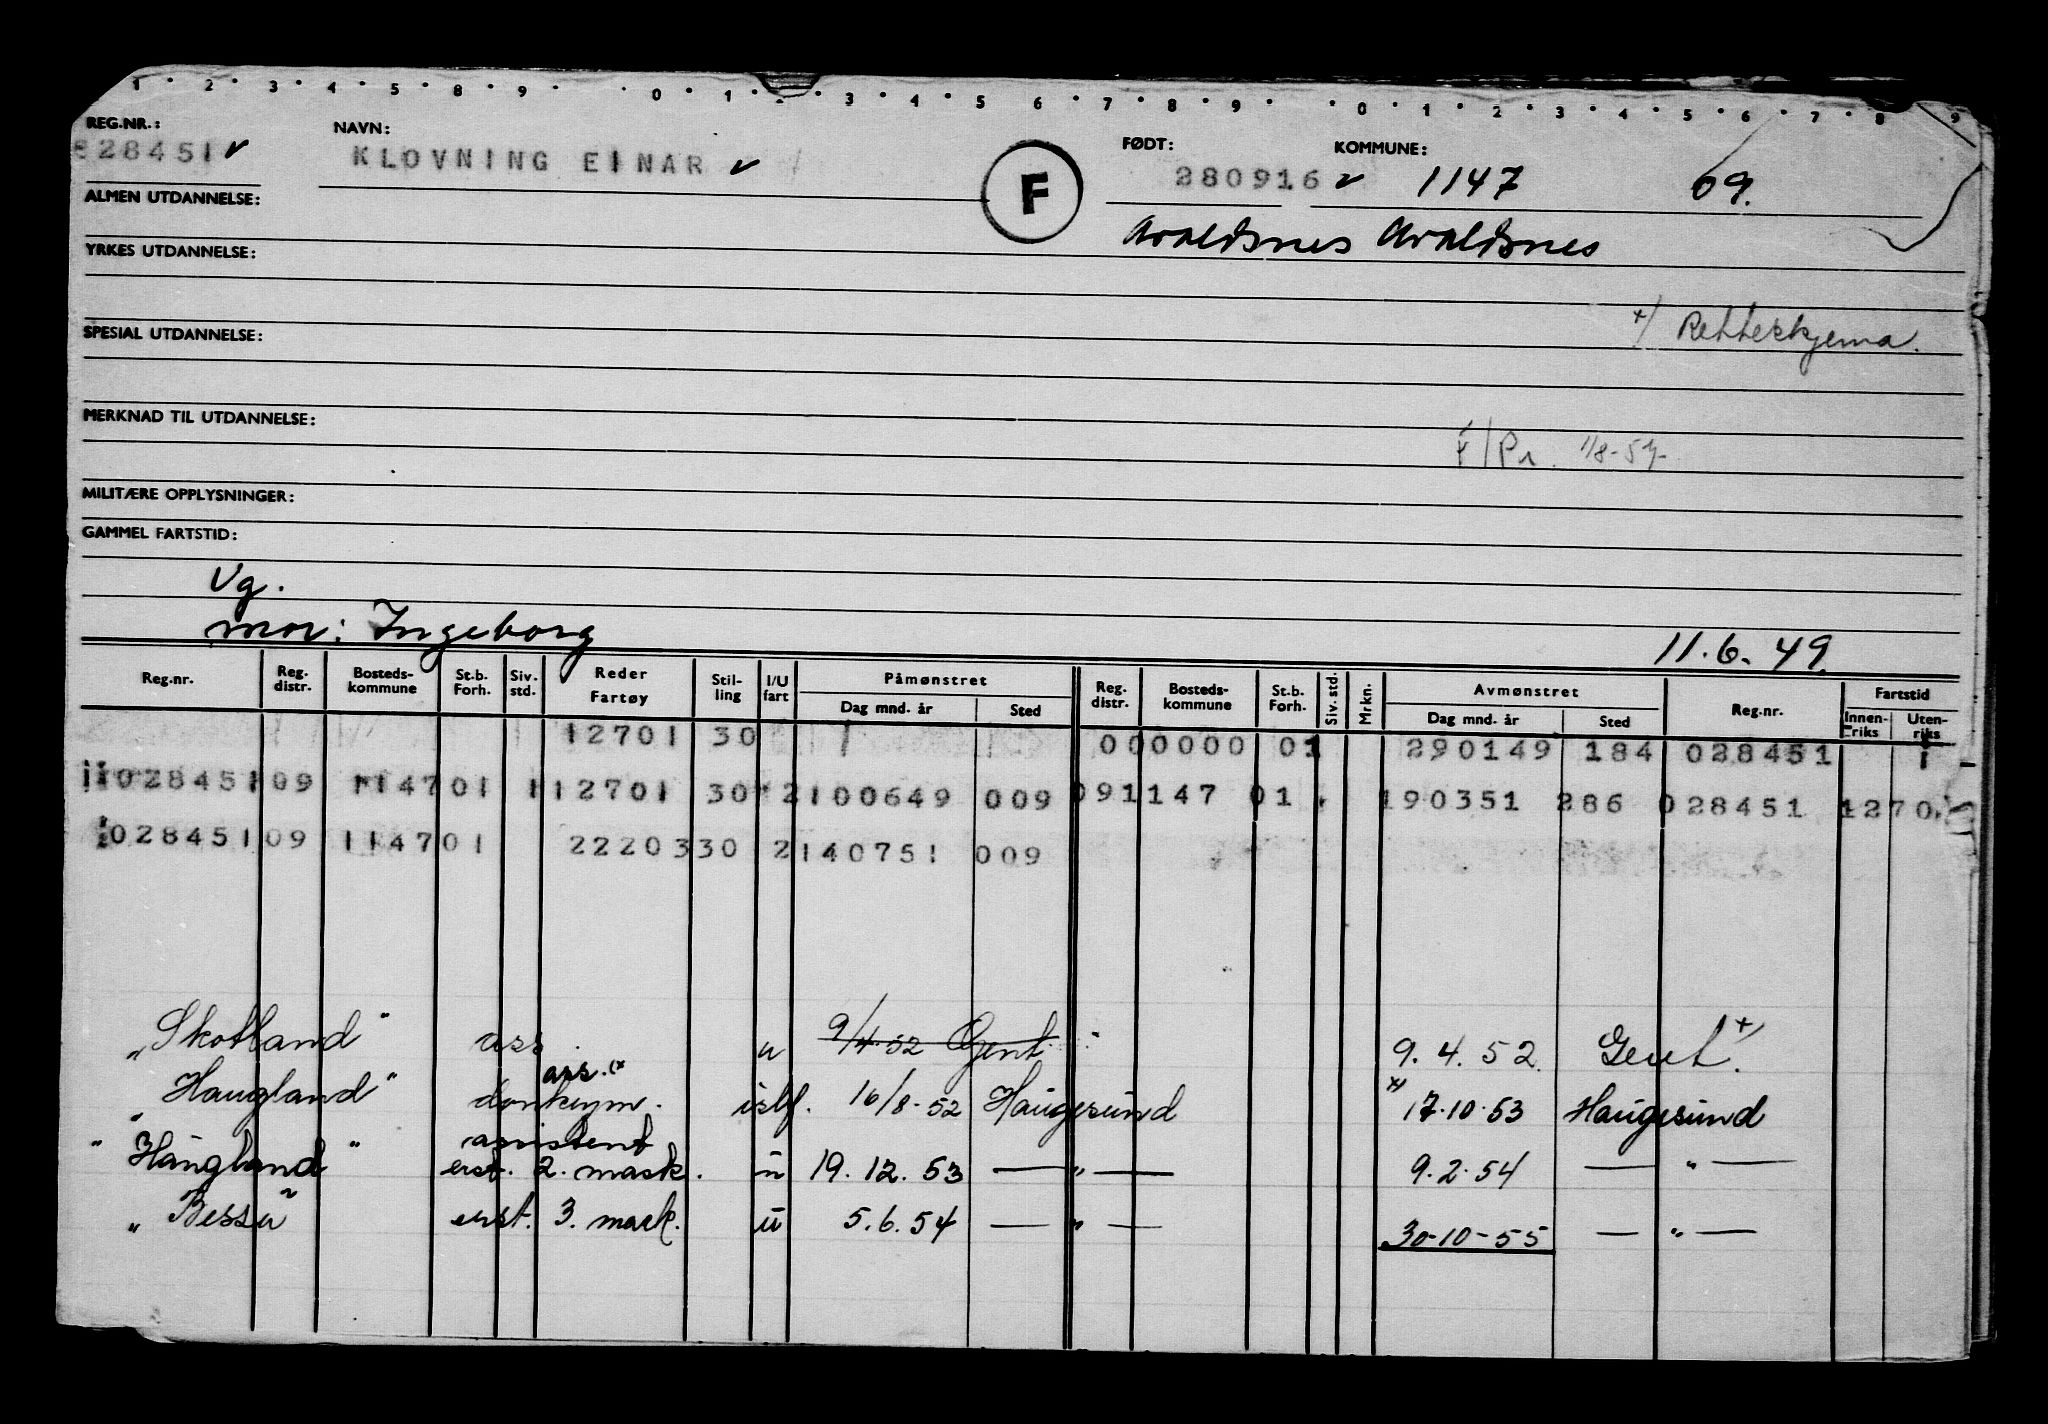 1 2 3 4 5 8 9 0 1 3 4 5 6 7 8 9 0 1 2 3 4 5 6 7 8 9
REG.NR.: NAVN: FØDT: KOMMUNE:
28451 KLOVNING EINAR F 280916 1147 09.
Avaldsnes Avaldsnes
ALMEN UTDANNELSE:
YRKES UTDANNELSE:
x/ Retteskjema.
SPESIAL UTDANNELSE:
MERKNAD TIL UTDANNELSE:
/Pr. 1/8-54
MILITÆRE OPPLYSNINGER:
GAMMEL FARTSTID:
Vg.
mor: Ingeborg 11.6.49
Reg.nr. Reg. distr. Bosteds- kommune St.b. Forh. Siv. std. Reder Fartøy Stil- ling I/U fart Påmønstret Dag mnd. år Sted Reg. distr. Bosteds- kommune St.b. Forh. Siv. std. Mrkn. Avmønstret Dag mnd. år Sted Reg.nr. Fartstid Innen- riks Uten- riks
12701 30 000000 01 290149 184 028451 1
028451 09 1147 01 1 12701 30 2 100649 009 09 1147 01 190351 286 028451 1270
028451 09 1147 01 22203 30 2 140751 009
"Skotland" ass. u 9/4-52 Gent 9.4.52 Gent. x/
ass. (x
"Haugland" donkeym. islf. 16/8-52 Haugesund x) 17-10-53 Haugesund
assistent
"Haugland" erst. 2. mask. u 19.12.53 — " — 9.2.54 — " —
"Bessa" erst. 3. mask. u 5.6.54 — " — 30-10-55 — " —